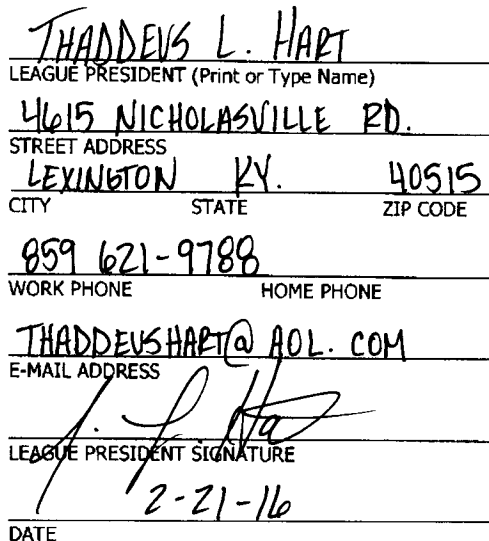 THADDEUS L. HART
LEAGUE PRESIDENT (Print or Type Name)
4615 NICHOLASVILLE RD.
STREET ADDRESS
LEXINGTON KY. 40515
CITY STATE ZIP CODE
859 621-9788
WORK PHONE HOME PHONE
THADDEUSHART@AOL.COM
E-MAIL ADDRESS
LEAGUE PRESIDENT SIGNATURE
2-21-16
DATE